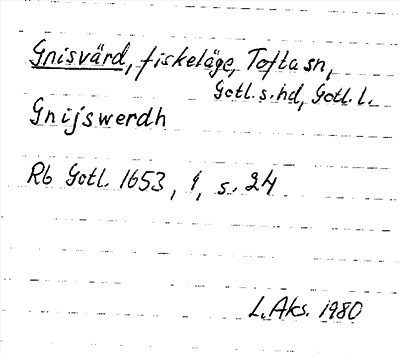 Gnisvärd, fiskeläge, Tofta sn,
Gotl. s. hd, Gotl. l.
Gnijswerdh
Rb Gotl. 1653, 1, s. 24
L. Aks. 1980